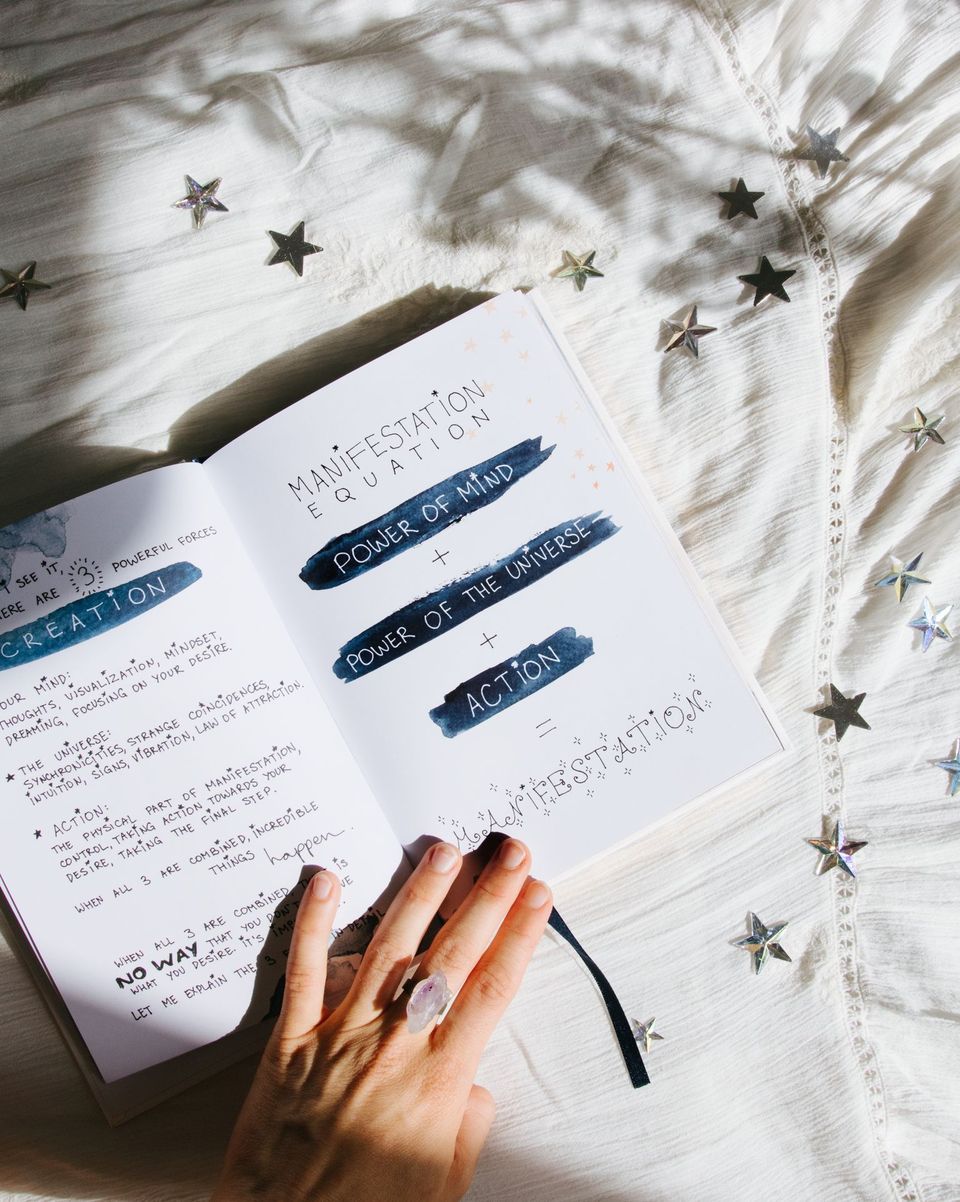 I SEE IT,
THERE ARE 3 POWERFUL FORCES
CREATION
OUR MIND:
THOUGHTS, VISUALIZATION, MINDSET,
DREAMING, FOCUSING ON YOUR DESIRE.
★ THE UNIVERSE:
SYNCHRONICITIES, STRANGE COINCIDENCES,
INTUITION, SIGNS, VIBRATION, LAW OF ATTRACTION.
★ ACTION:
THE PHYSICAL PART OF MANIFESTATION,
CONTROL, TAKING ACTION TOWARDS YOUR
DESIRE, TAKING THE FINAL STEP.
WHEN ALL 3 ARE COMBINED, INCREDIBLE
THINGS happen.
WHEN ALL 3 ARE COMBINED IS
NO WAY THAT YOU DON'T
WHAT YOU DESIRE. IT'S
LET ME EXPLAIN THE 3 IN DETAIL
MANIFESTATION
EQUATION
POWER OF MIND
+
POWER OF THE UNIVERSE
+
ACTION
=
MANIFESTATION